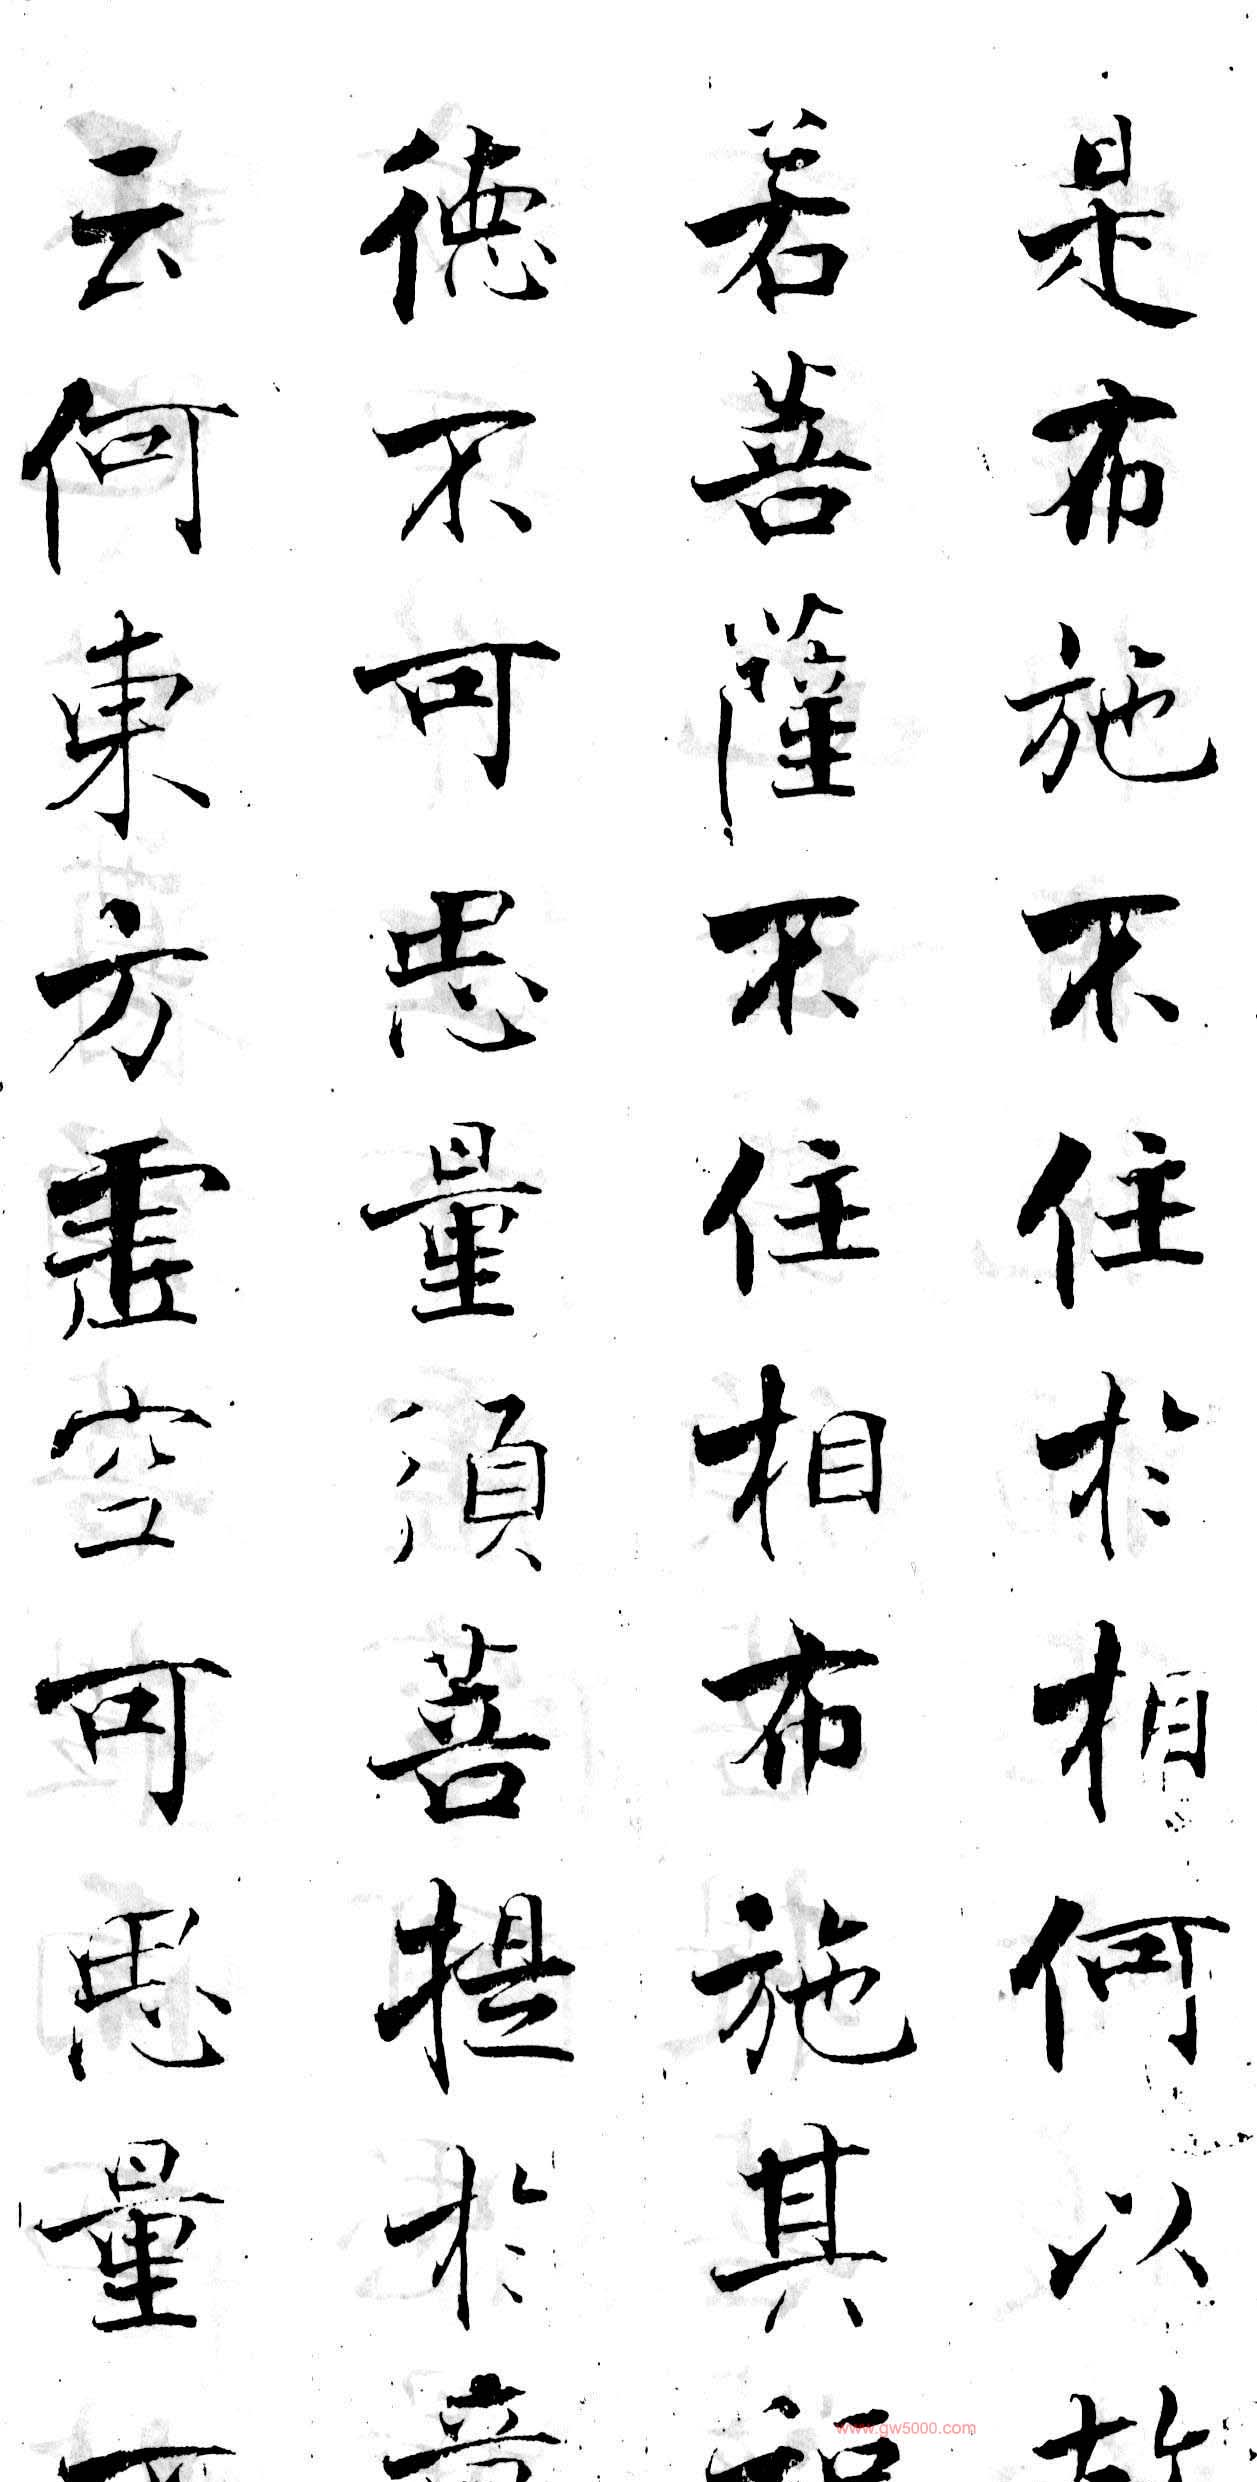 是布施不住於相何以故
若菩薩不住相布施其福
德不可思量須菩提於意
云何東方虛空可思量不
www.gw5000.com